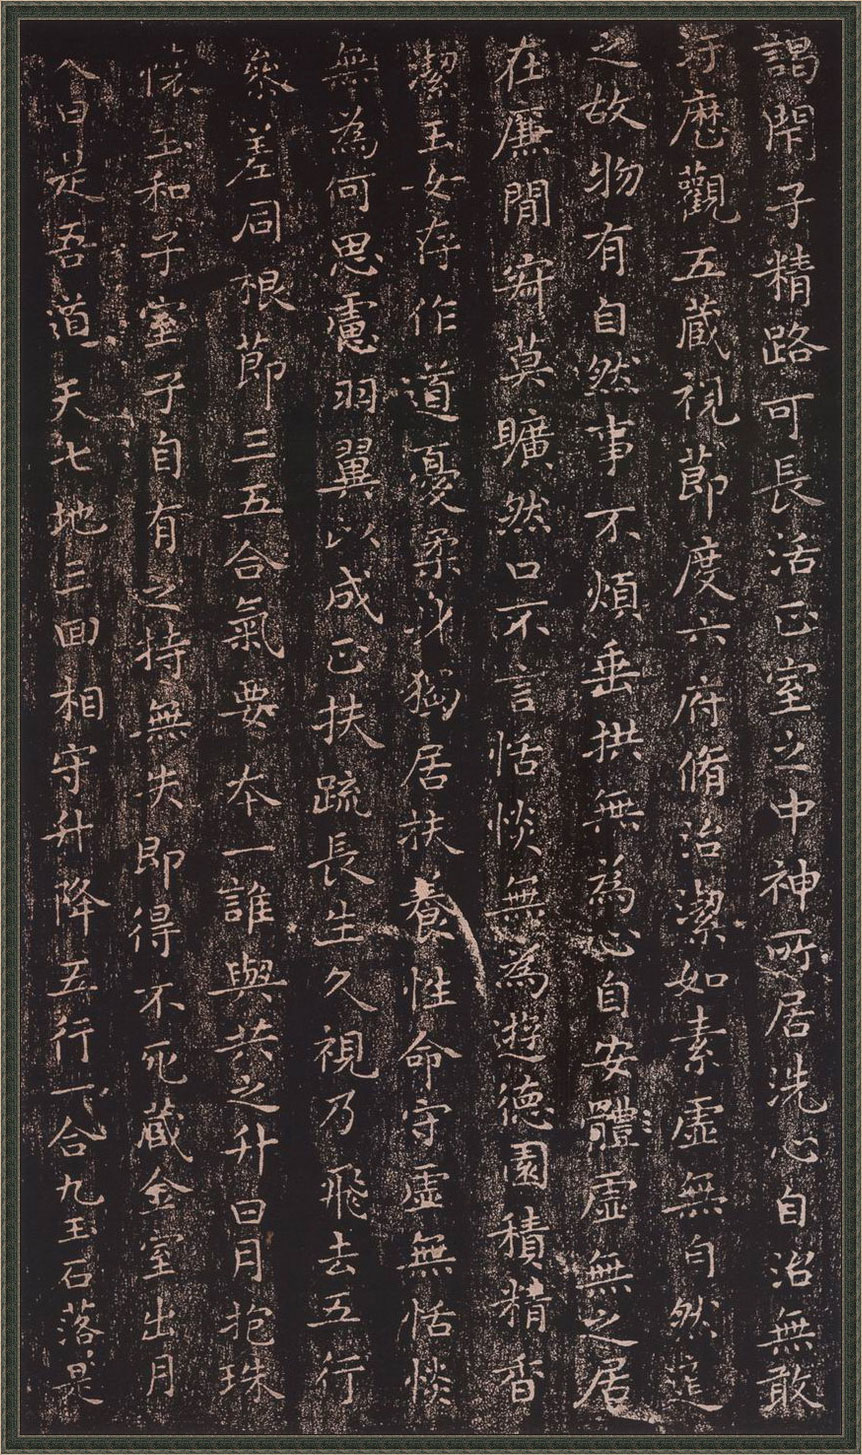 謁閇子精路可長活正室之中神所居洗心自治無敢
汙歷觀五藏視節度六府脩治潔如素虛無自然道
之故物有自然事不煩垂拱無為心自安體虛無之居
在廉間寂莫曠然口不言恬惔無為遊德園積精香
潔玉女存作道憂柔身獨居扶養性命守虛無恬惔
無為何思慮羽翼以成正扶疏長生久視乃飛去五行
參差同根節三五合氣要本一誰與共之升日月抱珠
懷玉和子室子自有之持無失即得不死藏金室出月
入日是吾道天七地三回相守升降五行一合九玉石落落是